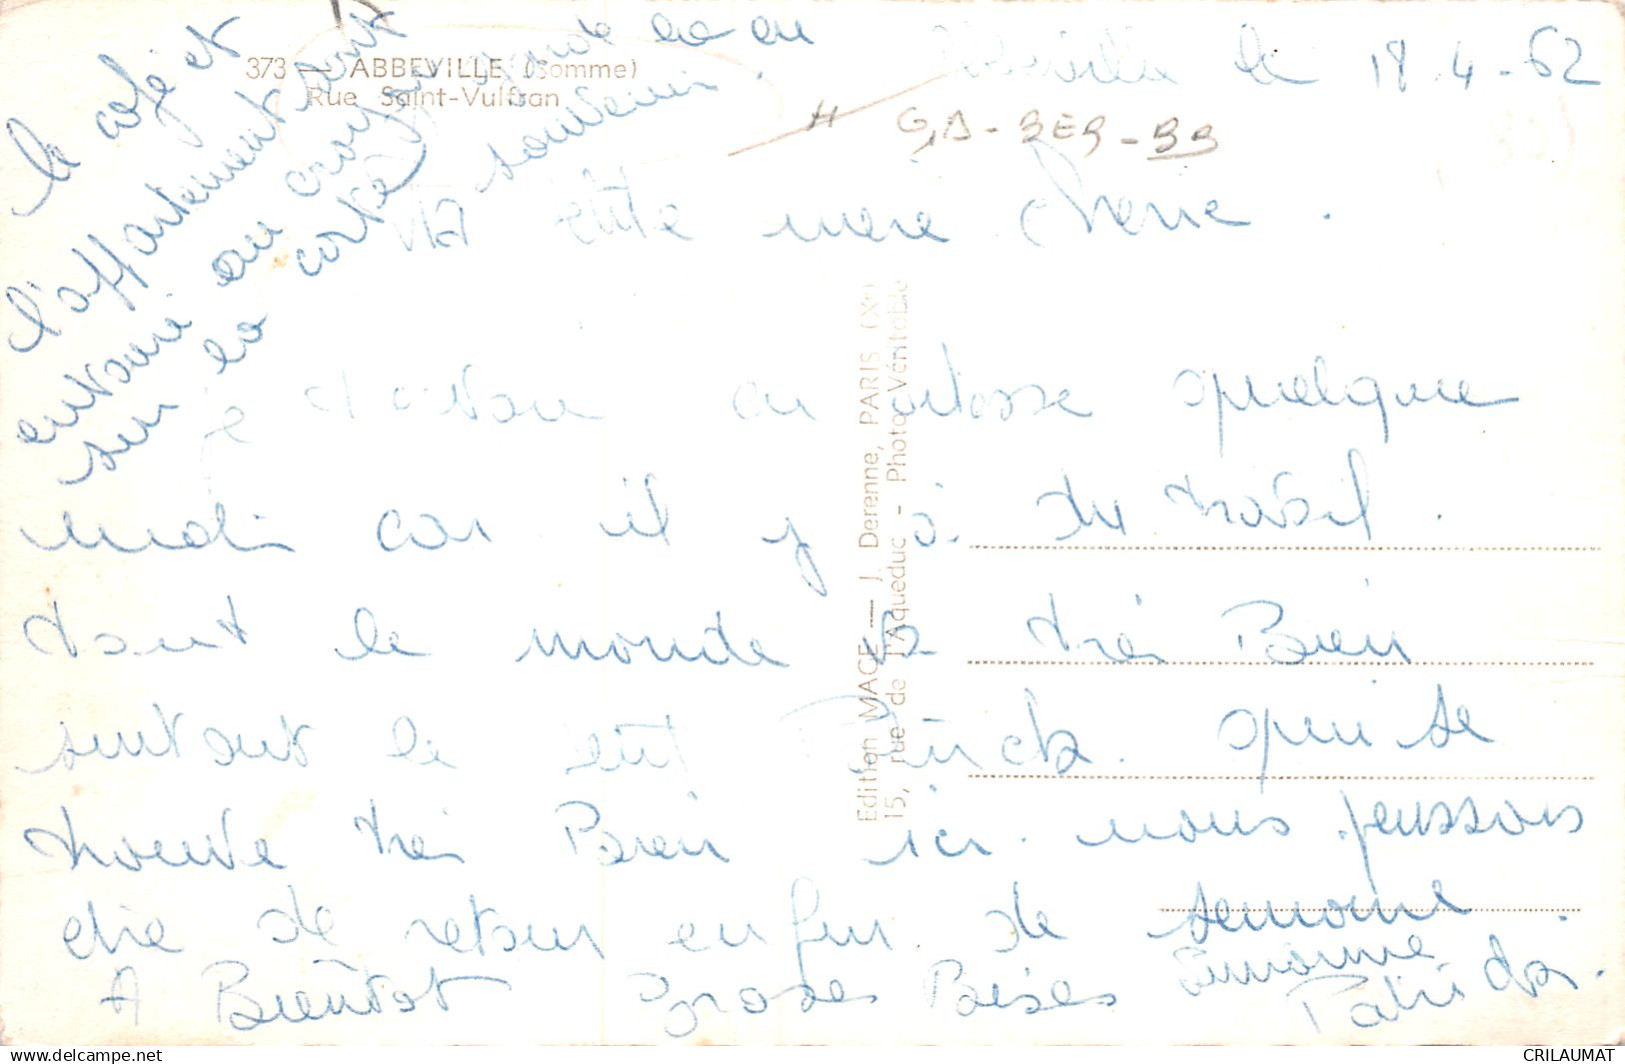 373 — ABBEVILLE (Somme)
Rue Saint-Vulfran
Abbeville le 18.4-62
H
GD-BER-BB
Ma petite mere cherie.
je t'ecris en vitesse quelque
mots car il y a du travail.
tout le monde va très Bien
surtout le petit Patrick. qui se
trouve très Bien ici. nous pensson
etre de retour en fin de semaine.
A Bientot Groses Bises Simonne
Patrick.
le café et
l'appartement sont
entouré au crayon
sur la carte
garde la en
souvenir.
Edition MAGE — J. Derenne, PARIS (Xe)
15, rue de l'Aqueduc - Photo Véritable
CRILAUMAT
delcampe.net